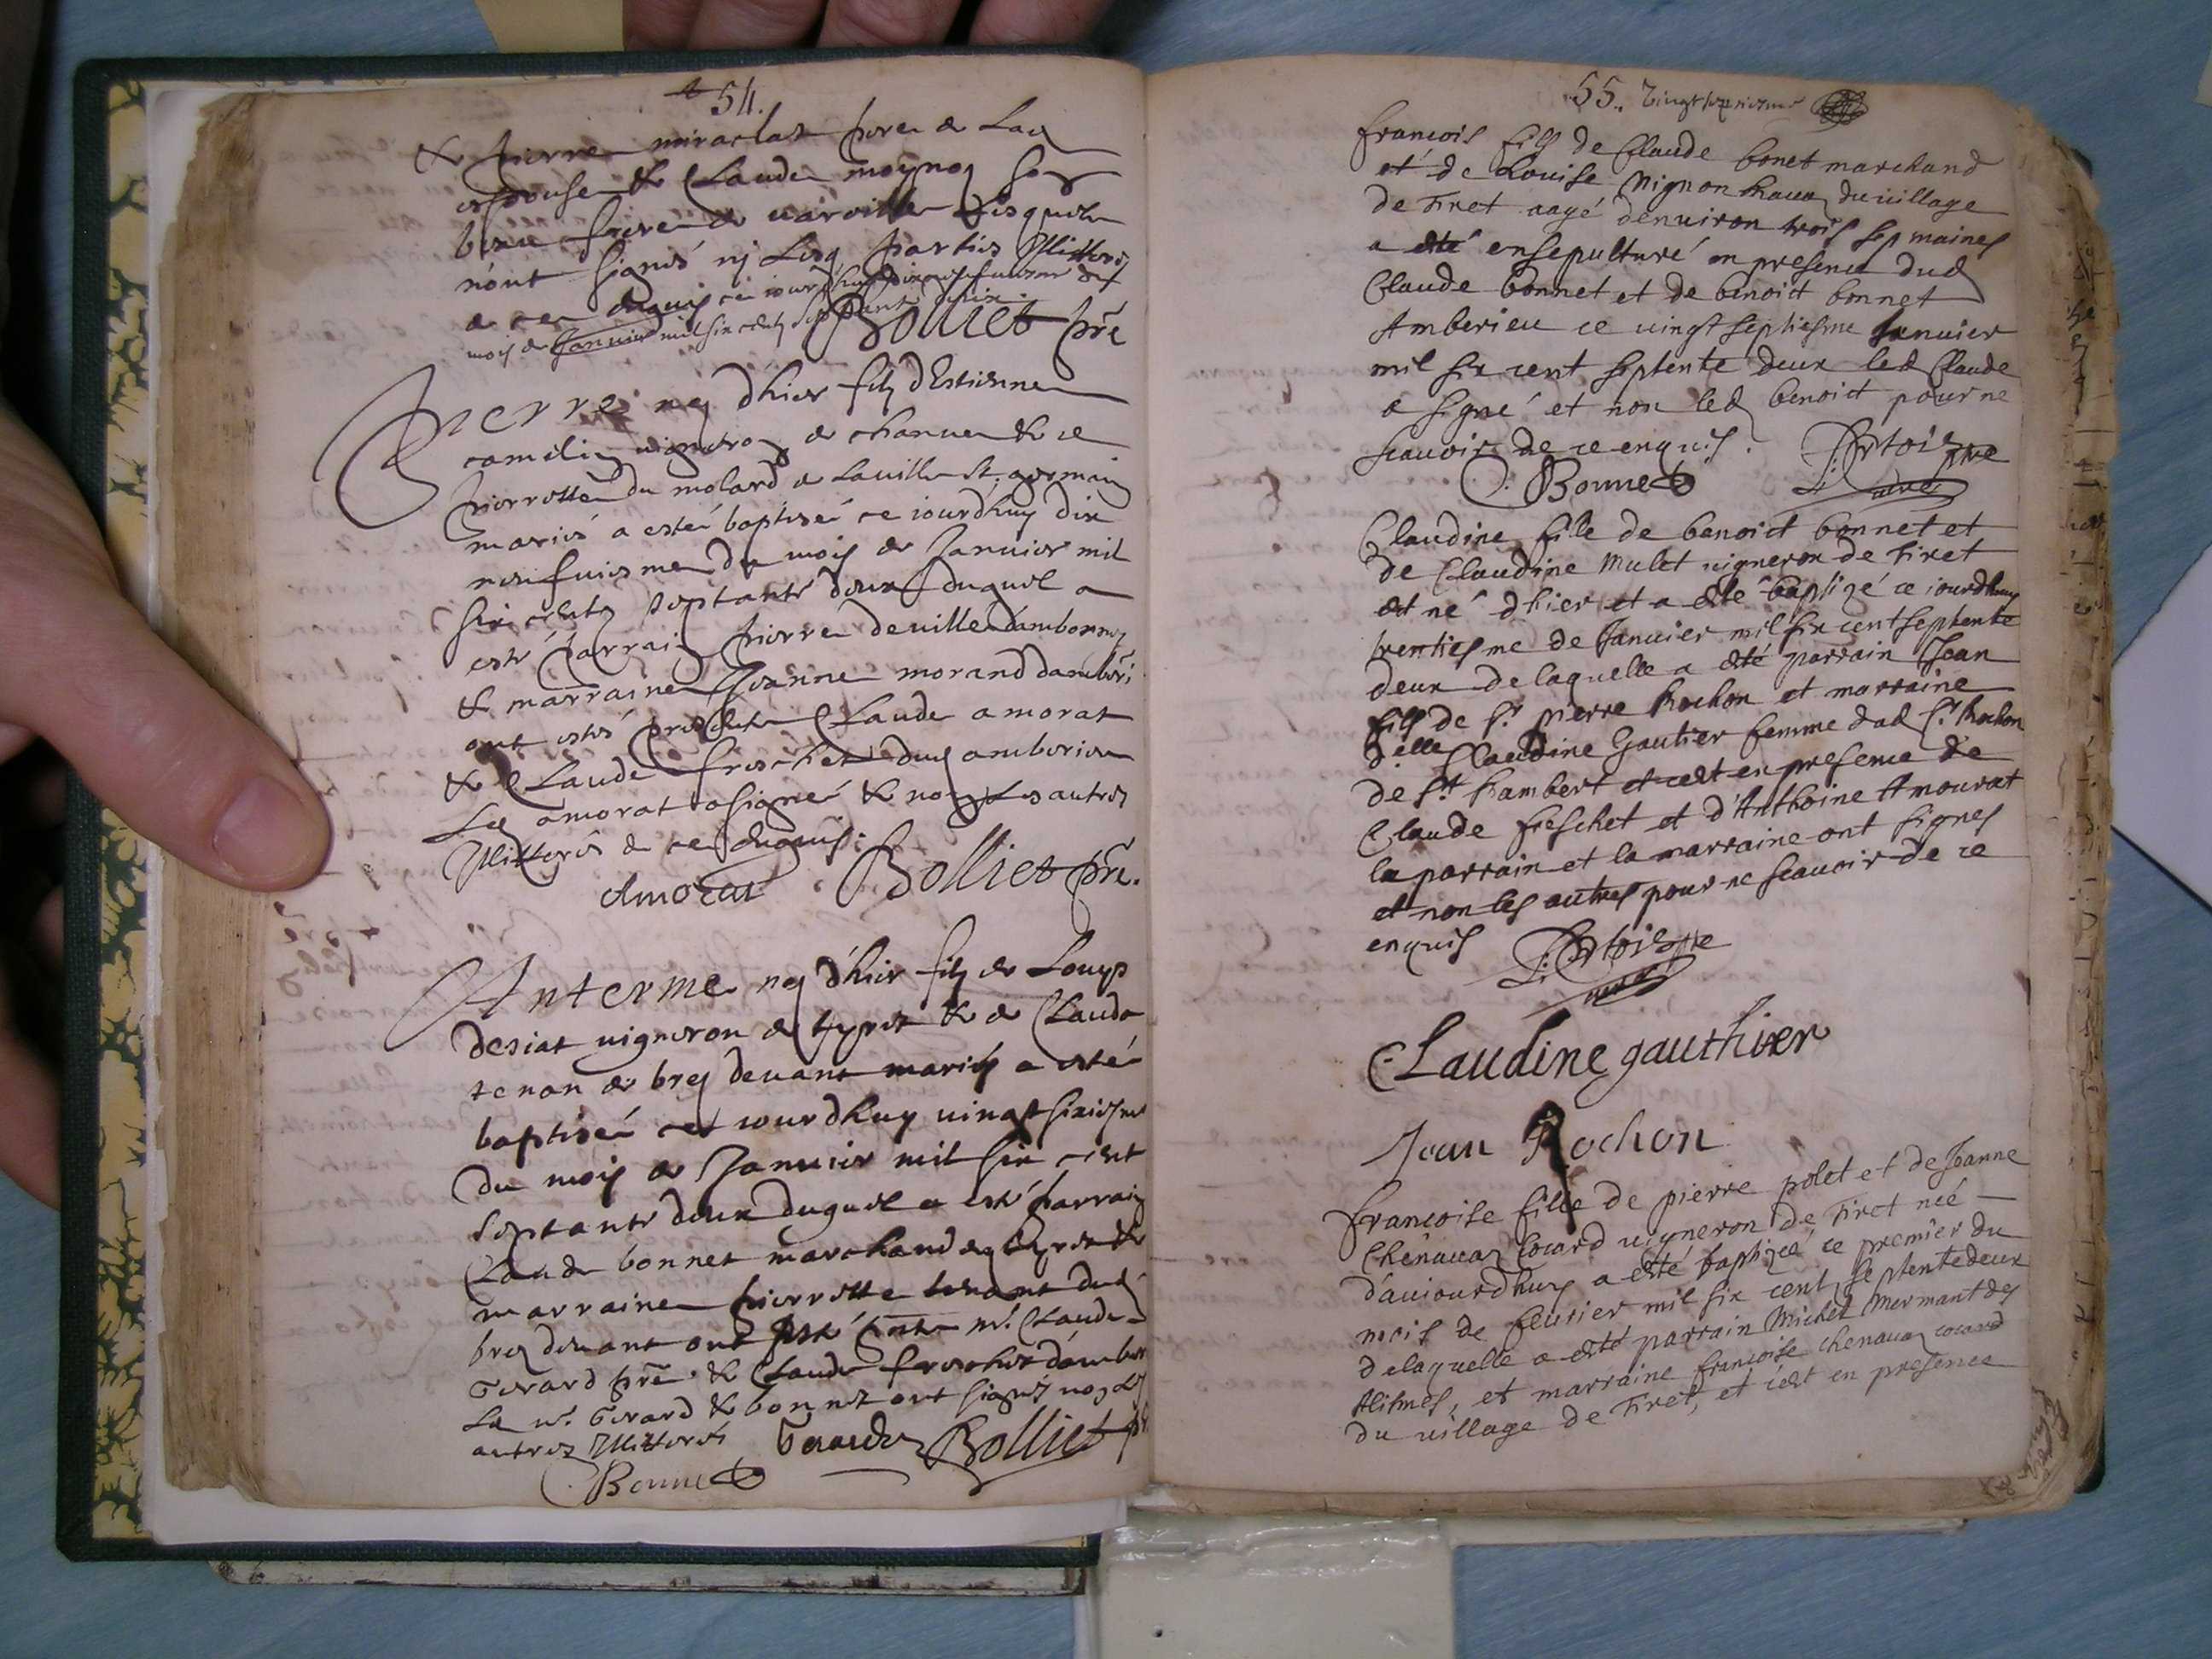 54.
& pierre miraclat frere de Lad
espouse & Claude moynoz son
beau frere de varoille lesquels
n'ont signés nj Lesd parties Illitterés
de ce enquis ce iourdhuy dixneufuiesme du
mois de Januier mil six cents septante deux.
Bolliet pre
Pierre né d'hier filz d'Estienne
camelin vigneron de chanues & de
pierrette du molard de Laville St. germain
mariés a esté baptisé ce iourdhuy dix
neufuiesme du mois de Januier mil
six cents septante deux duquel a
esté parrain pierre deville d'ambournay
& marraine Jeanne morand d'amberi
ont estés presents Claude amorat
& Claude freschet dud amberieu
Led amorat a signé & non Les autres
Illiterés de ce enquis.
Amorat Bolliet pre.
Anterme né d'hier filz de Louys
desiat vigneron de tyret & de Clauda
tenan de brey devant mariés a esté
baptisé ce iourdhuy vingt sixiesme
du mois de Januier mil six cent
septante deux duquel a esté parrain
Claude bonnet marchand de Tyret &
marraine pierrette tenant dud
brey devant ont esté pnts mr. Claude
Gerard pre & Claude freschet d'amber
Led mr. Gerard & bonnet ont signés non Les
autres Illiterés Gerard Bolliet pr
C. Bonnet
55. vingt septiesme
francois fils de Claude bonet marchand
et de Louise Mignon du village
de Tiret aagé denuiron trois sepmaines
a esté ensepulturé en presence dud
Claude bonnet et de benoict bonnet
Amberieu ce vingt septiesme Januier
mil six cent septente deux led Claude
a signé et non led benoict pour ne
scauoir de ce enquis.
C. Bonnet
Claudine fille de benoict bonnet et
de Claudine Mulet vigneron de Tiret
est né dhier et a esté baptizé ce iourdhuy
trentiesme de Januier mil six cent septente
deux de laquelle a esté parrain Jean
fils de Sr pierre Rochon et marraine
delle Claudine Gautier femme dud Sr Rochon
de St Rambert et cest en presence de
Claude freschet et d'Anthoine Amourat
le parrain et la marraine ont signes
et non les autres pour ne scauoir de ce
enquis
Claudine gauthier
Jean Rochon
francoise fille de pierre polet et de Jeanne
Chenauaz Cocard vigneron de Tiret née
d'auiourdhuy a esté baptizeé ce premier du
mois de feurier mil six cents septente deux
delaquelle a esté parrain Michel Mermant des
Alismes, et marraine francoise chenauaz cocard
du village de Tiret, et c'est en presence